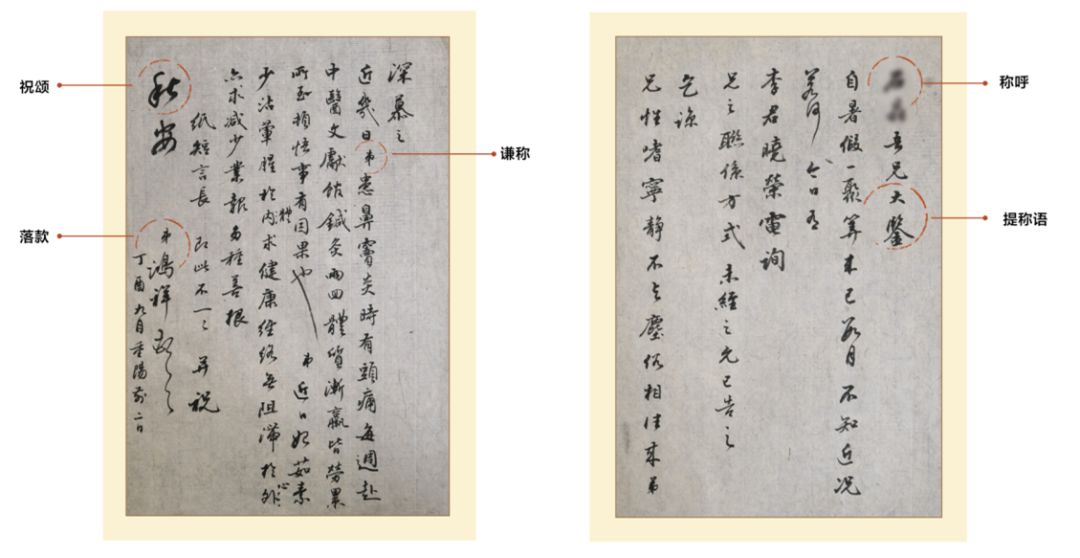 称呼
提称语
吾兄大鑒
自暑假一聚算來已数月不知近况
若何 今日有
李君曉榮電詢
兄之聯係方式 未經之允已告之
乞諒
兄性嗜寧静不与塵俗相往来弟
谦称
祝颂
落款
深慕之
近幾日弟患鼻竇炎時有頭痛每週赴
中醫文獻館鍼灸兩回體質漸羸皆勞累
所致頓悟事有因果也 弟近日始茹素
少沾葷腥於内體求健康經絡無阻滞於外心
亦求减少業報多種善根
紙短言長 即此不一一 并祝
秋安
弟鴻祥
丁酉九月重陽前二日